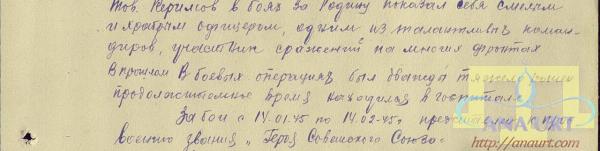 Тов. Керимов в боях за Родину показал себя смелым
и храбрым офицером, одним из талантливых коман-
диров, участник сражений на многих фронтах
В прошлом в боевых операциях был дважды тяжело ранен
продолжительное время находился в госпитале.
За бои с 14.01.45 по 14.02.45г. представлен к при-
воению звания "Героя Советского Союза".
ANA YURT
http://anaurt.com